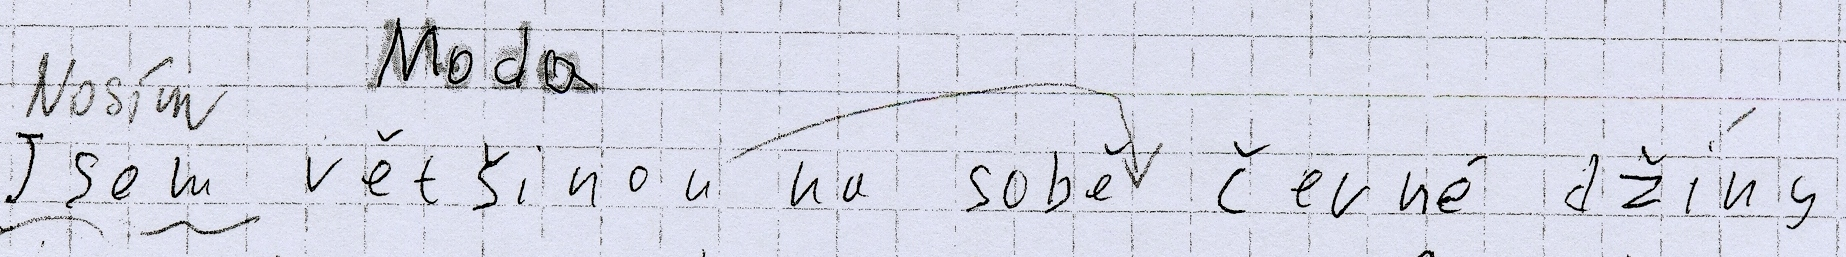 Moda
Nosím
Jsem většinou na sobě černé džíny